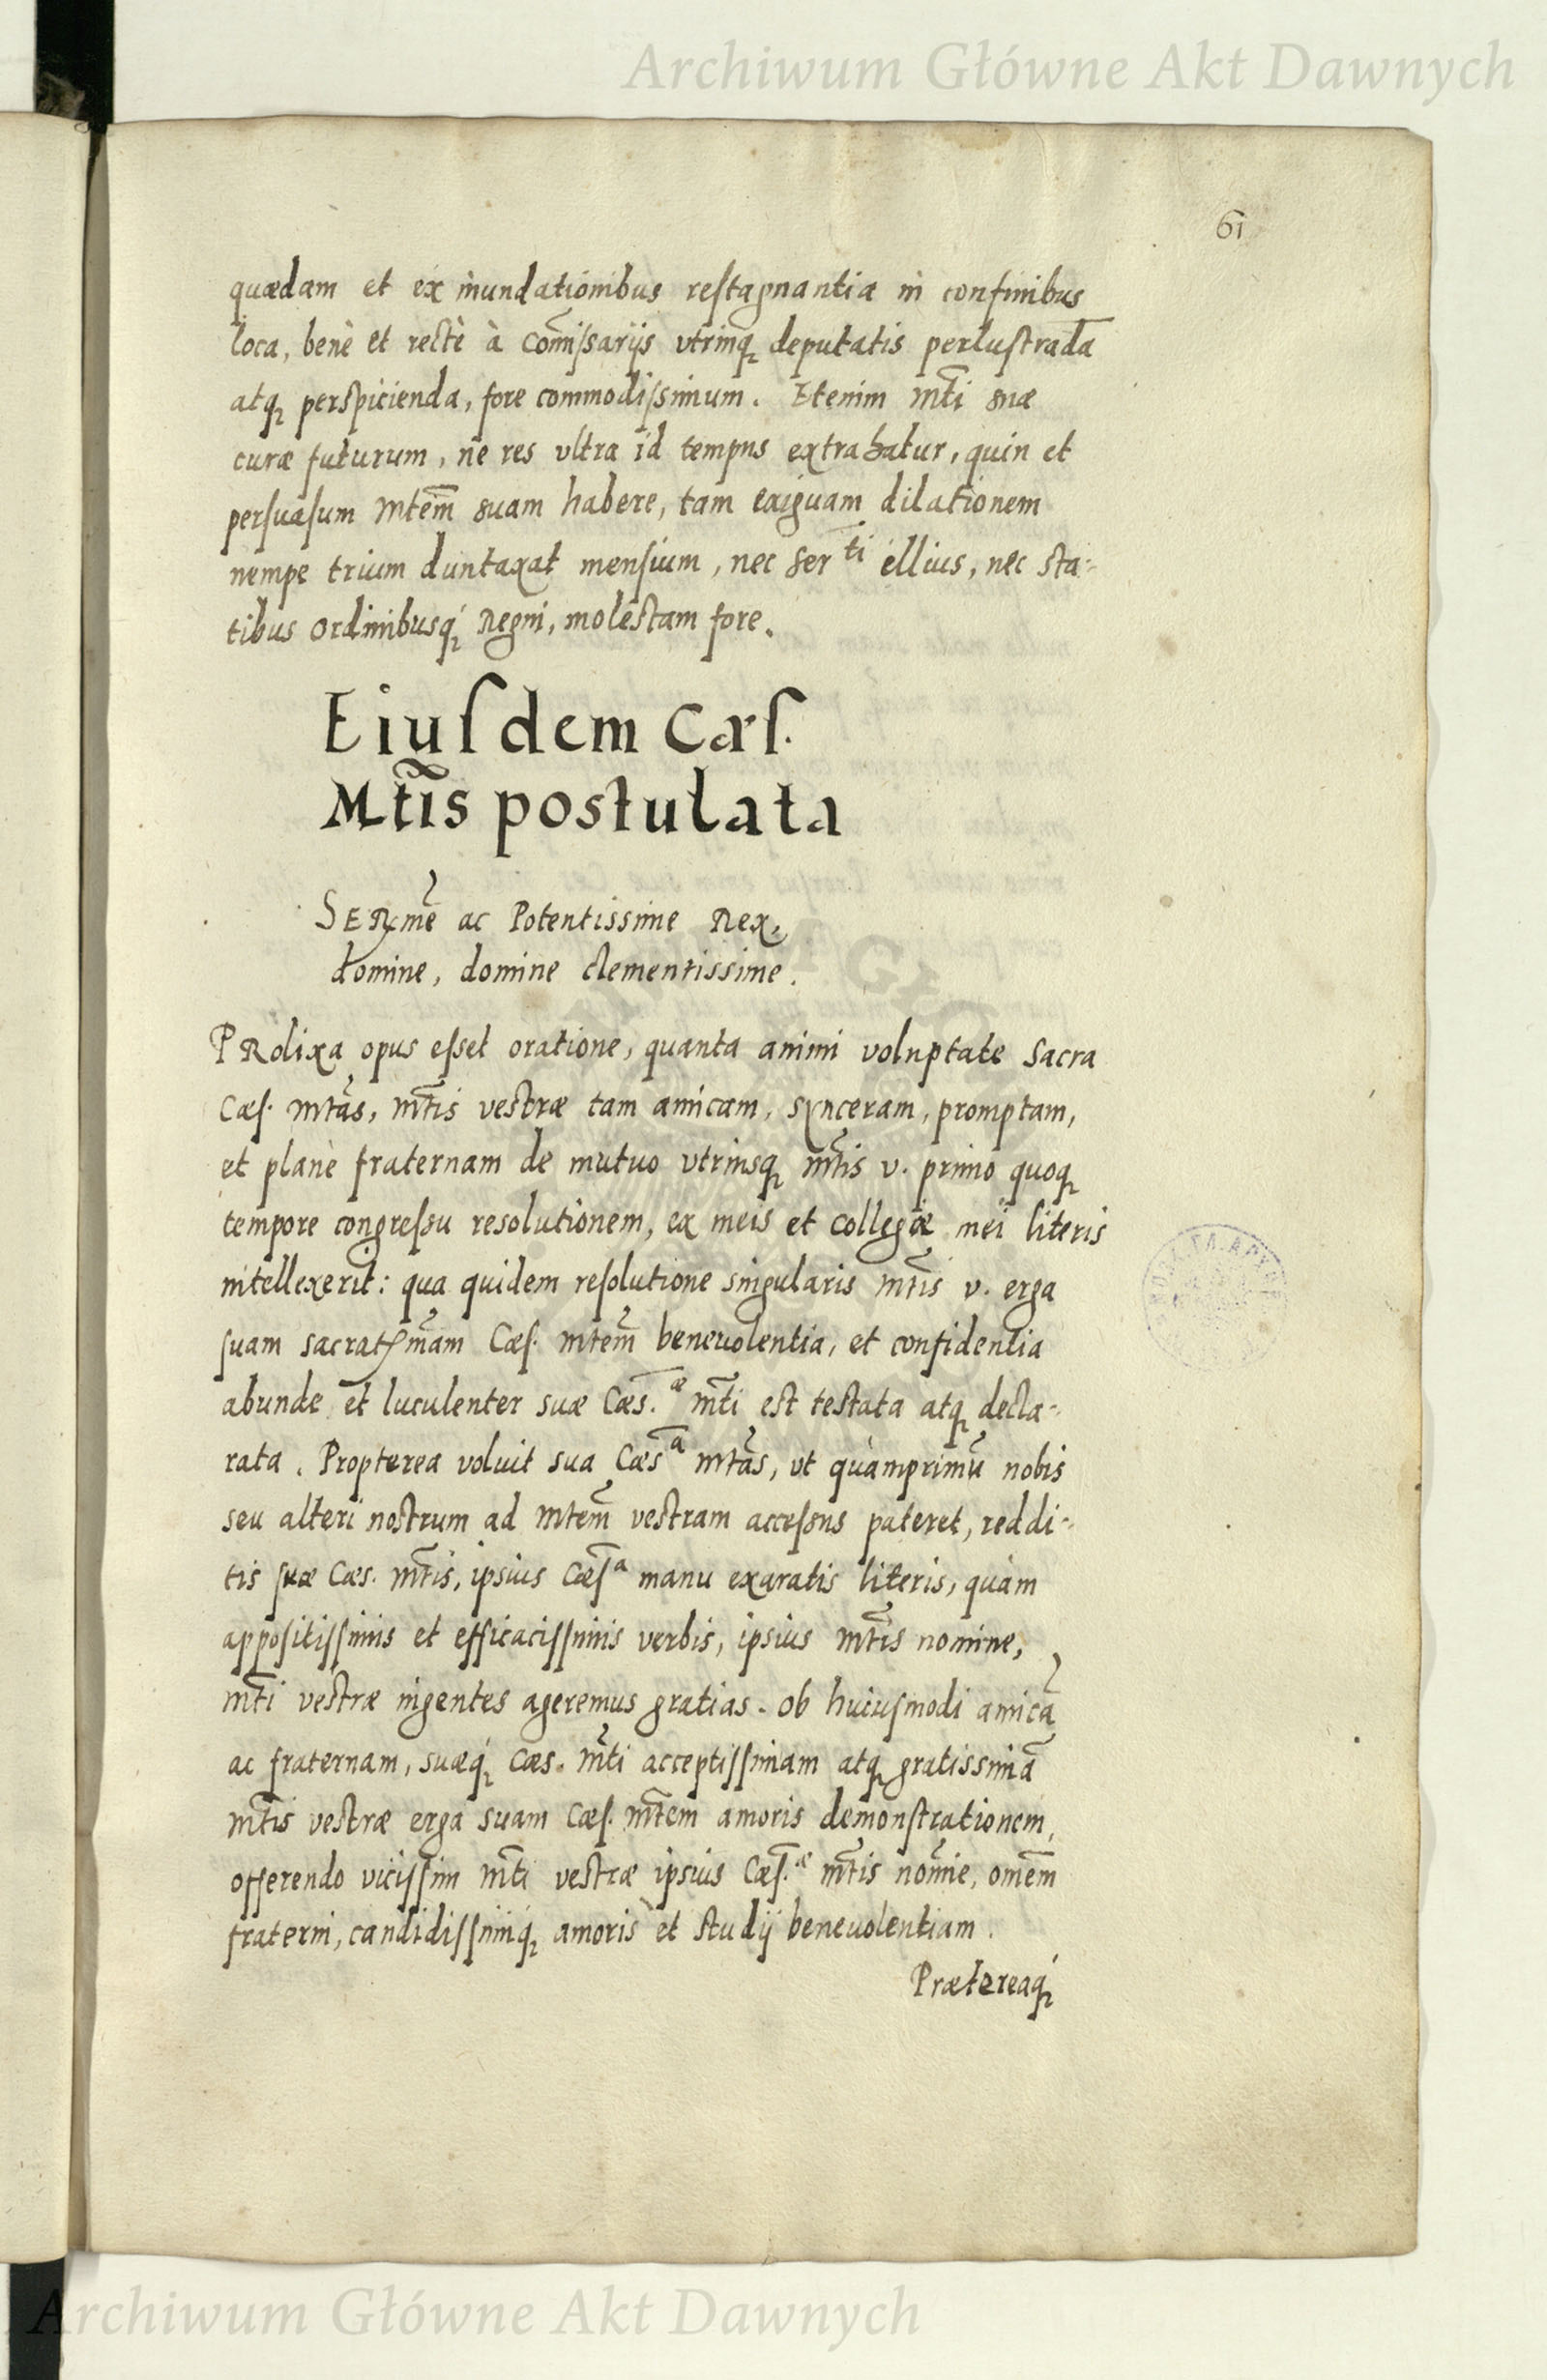 Archiwum Główne Akt Dawnych
61
quædam et ex inundationibus restagnantia in confinibus
loca, benè et rectè à Com̃issarijs vtrinq; deputatis perlustrada
atq; perspicienda, fore commodissimum. Etenim Mt̃i suæ
curæ futurum, ne res vltra id tempus extrahatur, quin et
persuasum Mtem̃ suam habere, tam exiguam dilationem
nempe trium duntaxat mensium, nec Ser ti illius, nec sta-
tibus Ordinibusq; Regni, molestam fore.
Eiusdem Cæs.
Mt̃is postulata
SERme ac Potentissime Rex,
domine, domine clementissime.
PRolixa opus esset oratione, quanta animi voluptate Sacra
Cæs. Mtãs, Mt̃is vestræ tam amicam, synceram, promptam,
et planè fraternam de mutuo vtriusq; Mt̃is v. primo quoq;
tempore congressu resolutionem, ex meis et Collegæ mei literis
intellexerit: qua quidem resolutione singularis Mt̃is v. erga
suam sacratmam Cæs. Mtem̃ beneuolentia, et confidentia
abunde et luculenter suæ Cæs.æ Mt̃i est testata atq; decla-
rata. Propterea voluit sua Cæsa Mtãs, vt quàmprimũ nobis
seu alteri nostrum ad Mtem̃ vestram accessus pateret, reddi-
tis suæ Cæs. Mt̃is, ipsius Cæsa manu exaratis literis, quàm
appositissimis et efficacissimis verbis, ipsius Mt̃is nomine,
Mt̃i vestræ ingentes ageremus gratias. Ob huiusmodi amicã
ac fraternam, suæq; Cæs. Mt̃i acceptissimam atq; gratissimã
Mt̃is vestræ erga suam Cæs. Mt̃em amoris demonstrationem,
offerendo vicissim Mt̃i vestræ ipsius Cæs.æ Mt̃is nom̃ie, omẽm
fraterni, candidissimiq; amoris et studij beneuolentiam.
Prætereaq;
Archiwum Główne Akt Dawnych